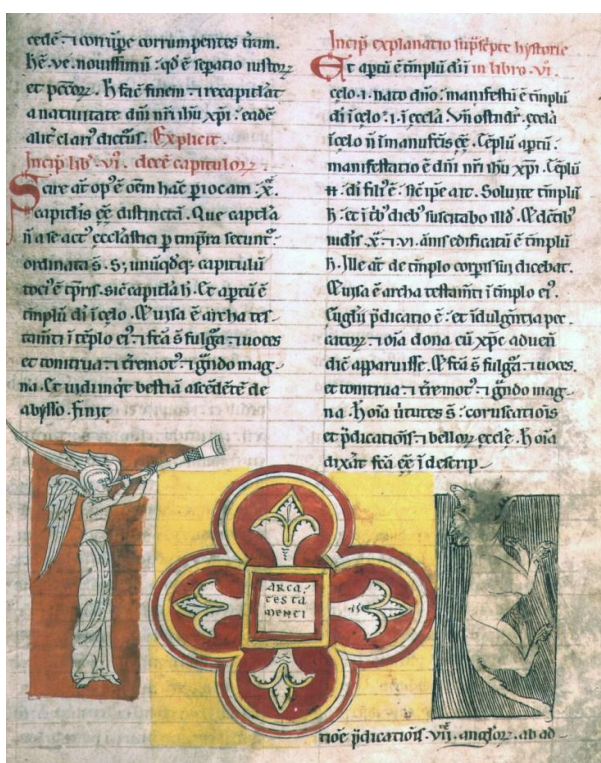 cedē. ⁊ corrūpe corrumpentes t̄ram.
nouissimū. qd̄ ē sepatio iustoꝝ
et peccoꝝ. h̄ fac finem. ⁊ recapitlat
a natiuitate dn̄i nr̄i ihū xp̄i. eadē
alit̄ clariꝰ Explicit.
Incip̄ lib̄. vi. decē capituloꝝ.
Scire at̄ opꝰ ē oēm hāc ꝑiocam .x.
capitlis eē distinctā. Que capitla
n̄ a se actꝰ ecclāstici ꝑ tēpora
ordinata s̄. S; unūqdqꝫ capitulū
tociꝰ ē tp̄ris. sic capitla h̄. Et aptū ē
tēplū di ī celo. Et uisa ē archa tes
tam̄ti ī tēplo eiꝰ. ⁊ fc̄a s̄ fulgͣa. ⁊ uoces
et tonitrua. ⁊ t̄remotꝰ. ⁊ gͣndo mag
na. Et uidi bestiā ascēdētē de
abysso. finit
Incip̄ explanatio sup̄scͥpte hystorie
Et aptū ē tmplū di in libro .vi.
celo .i. nato dn̄o. manifestū ē tmplū
di ī celo .i. ī ecclā. Vn̄ ostndit. ecclā
ī celo n̄ ī manufcīs eē. Tēplū aptū.
manifestatio ē dn̄i nr̄i ihū xp̄i. Tēplū
di filiꝰ ē. sic̄ ip̄e ait. Soluite tmplū
h̄. et ī t̄bꝰ diebꝰ suscitabo illd̄.
iudīs. xͣ. ⁊ .vi. ānis edificatū ē tmplū
h̄. Ille at̄ de tmplo corpīs sui dicebat.
Et uisa ē archa testam̄ti ī tmplo eiꝰ.
Euglīi p̄dicatio ē. et idulgn̄tia pec
catoꝝ. ⁊ oīa dona cū xp̄c aduen̄
dic̄ apparuisse. Et fc̄a s̄ fulgͣa. ⁊ uoces.
et tonitrua. ⁊ t̄remotꝰ. ⁊ gͣndo mag
na. h̄ oīa ūtutes s̄. coruscatiōis
et p̄dicatiōis. ⁊ belloꝝ ecclē. h̄ oīa
dixͣat fc̄a eē ī descrip
tiōe p̄dicatiōis .vii. angloꝝ. ab ad
ARCA
TESTA
MENTI